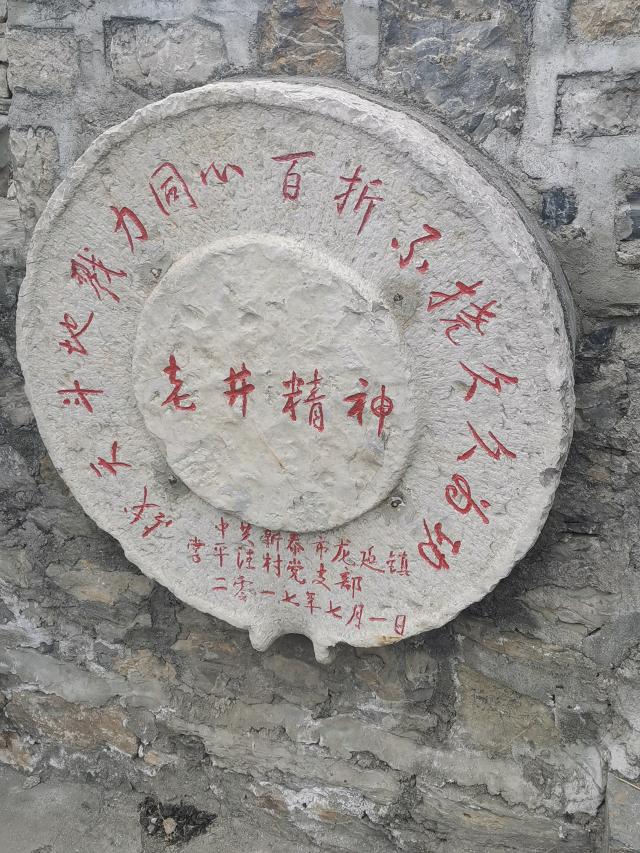 战天斗地戮力同心百折不挠久久为功
老井精神
中共新泰市龙廷镇
掌平洼村党支部
二零一七年七月一日